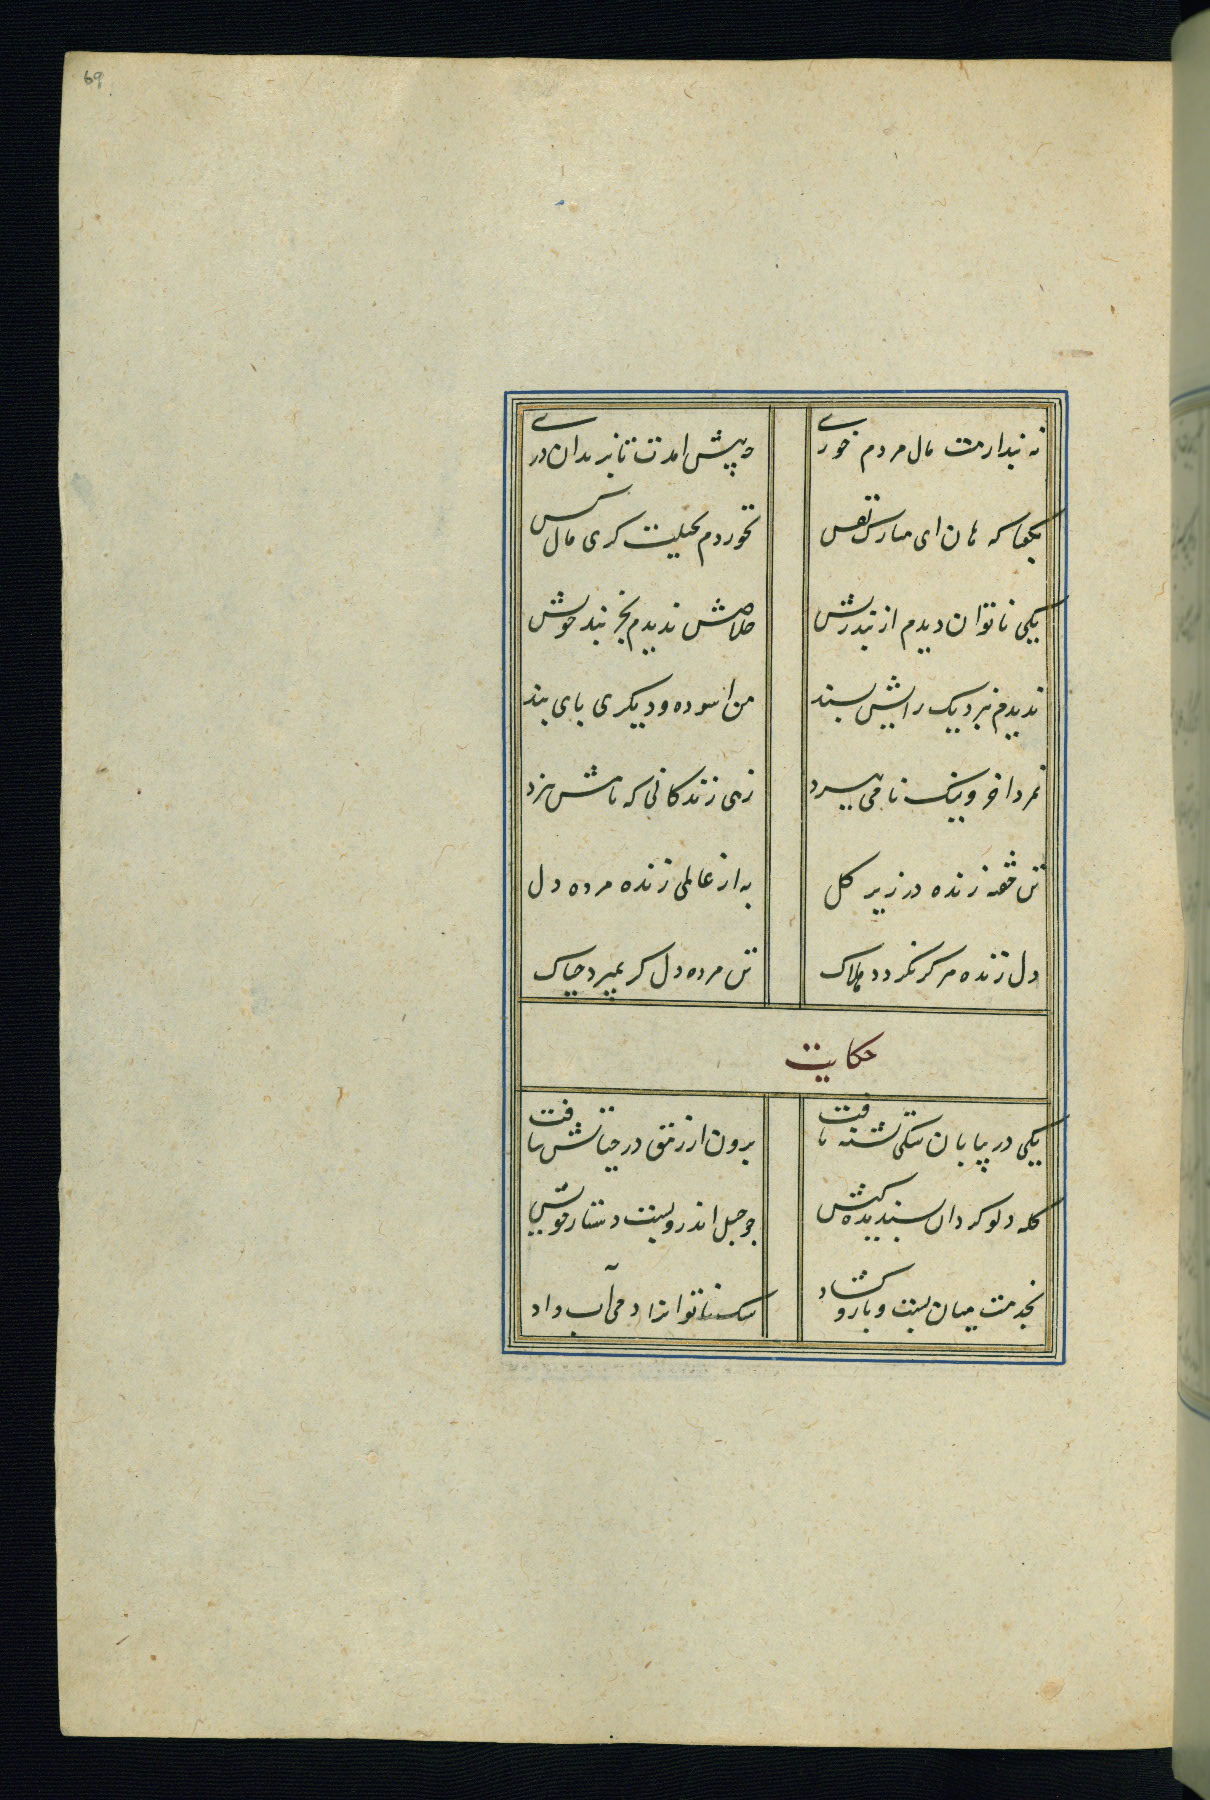 69
نه پندارمت مال مردم خوری
چه پیش امدت تا بزندان دری
بگفتا که هان ای مبارک نفس
نخوردم بحیلت کری مال کس
یکی ناتوان دیدم از بند ریش
خلاصش ندیدم بجز بند خویش
ندیدم بنزدیک رایش پسند
من اسوده و دیکری بای بند
نمرد اخر و نیک نامی ببرد
زهی زندکانی که نامش نمرد
تن خفته زنده در زیر کل
به از عالمی زنده مرده دل
دل زنده هرکز نکردد هلاک
تن مرده دل کر بمیرد چه باک
حکایت
یکی در بیابان سکی تشنه یافت
برون از رمق در حیاتش نیافت
کله دلو کرد ان پسندیده کیش
چو حبل اندرو بست دستار خویش
بخدمت میان بست و بازو کشاد
سک ناتوانرا دمی آب داد